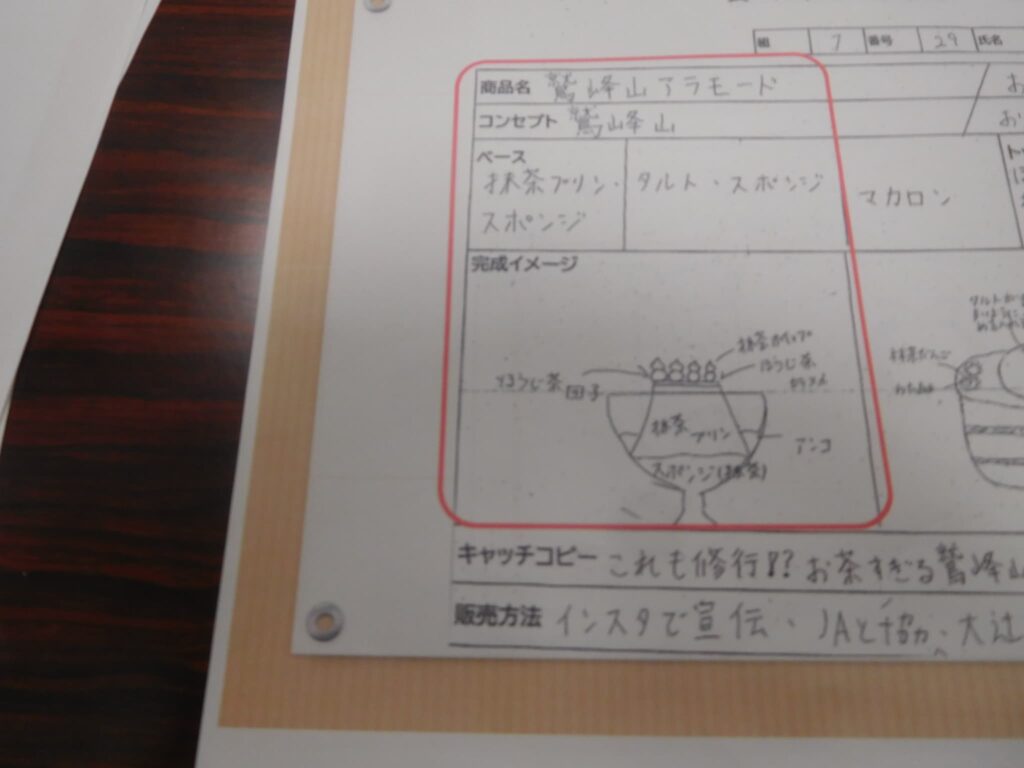 組 7 番号 29 氏名
商品名 鷲峰山アラモード
コンセプト 鷲峰山
ベース
抹茶プリン・ タルト・スポンジ マカロン
スポンジ
完成イメージ
抹茶ホイップ
ほうじ茶
ほうじ茶 団子
抹茶 プリン
アンコ
スポンジ(抹茶)
抹茶だんご
キャッチコピー これも修行!? お茶すぎる鷲峰山
販売方法 インスタで宣伝、JAと協力、大辻